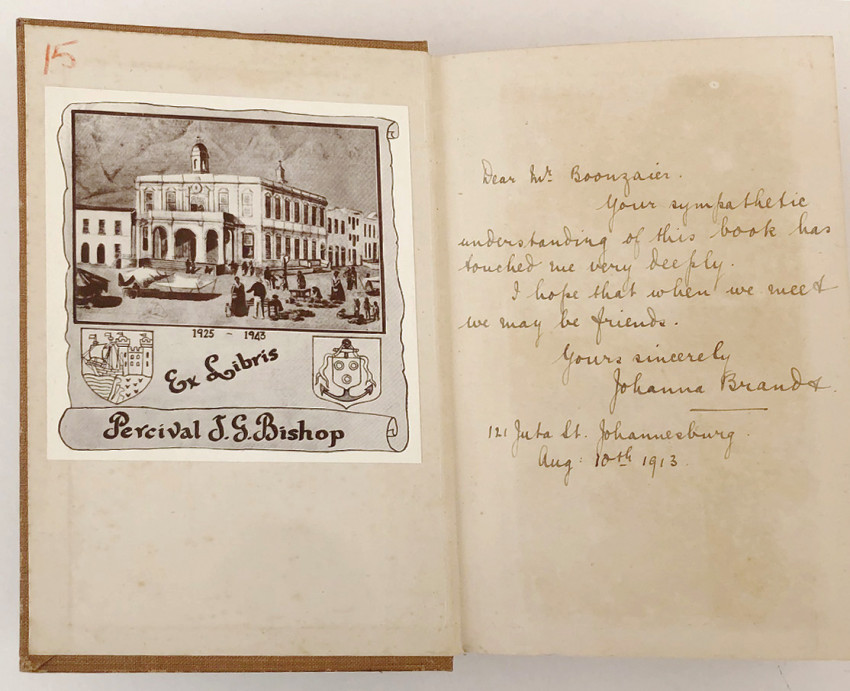 15
1925 - 1943
Ex Libris
Percival J. G. Bishop
Dear Mr. Boonzaier.
Your sympathetic
understanding of this book has
touched me very deeply.
I hope that when we meet
we may be friends.
Yours sincerely
Johanna Brandt.
121 Juta St. Johannesburg.
Aug: 10th 1913.